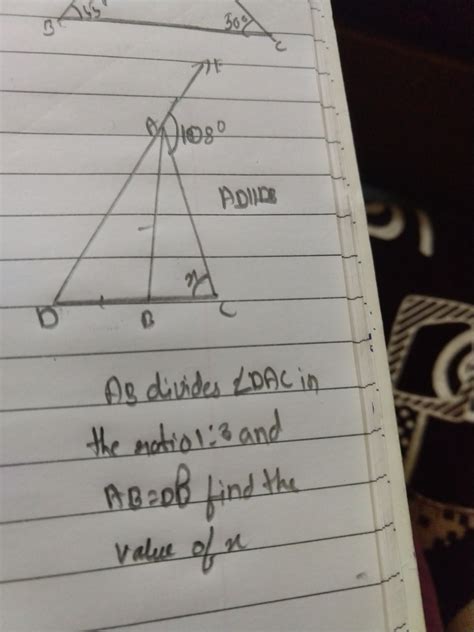 B 45° 30° C
A 108°
x
D B C
AB divides ∠DAC in
the ratio 1:3 and
AB=DB find the
value of x